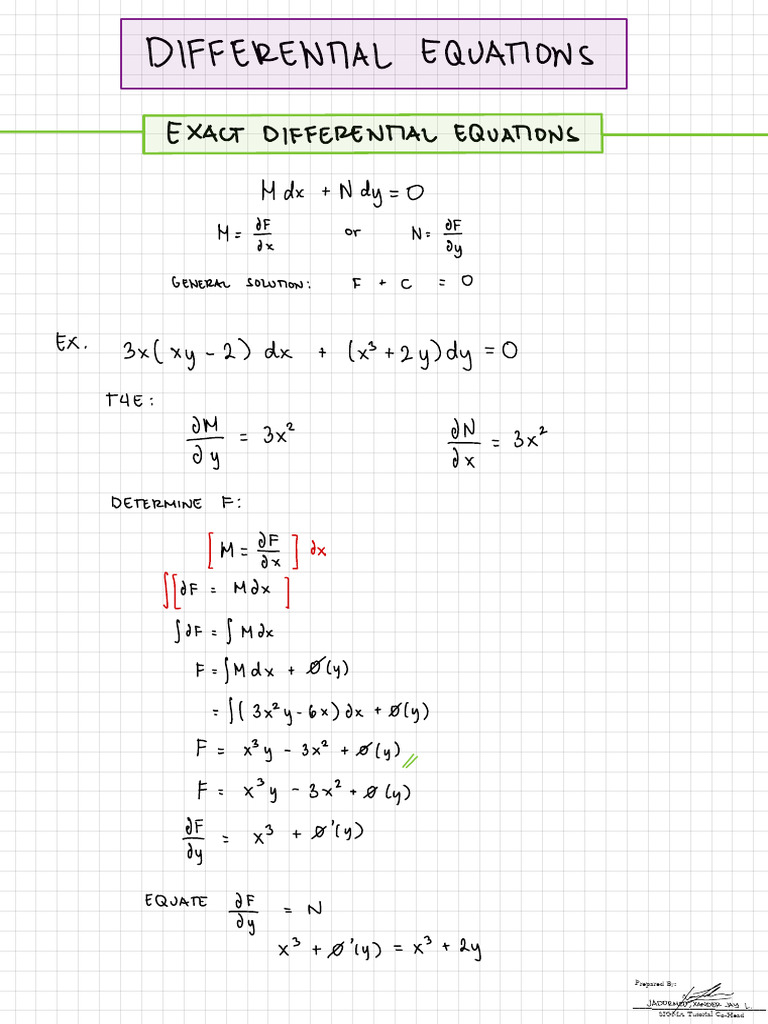 DIFFERENTIAL EQUATIONS
EXACT DIFFERENTIAL EQUATIONS
M dx + N dy = 0
M = ∂F/∂x or N = ∂F/∂y
GENERAL SOLUTION: F + C = 0
EX. 3x(xy - 2) dx + (x³ + 2y) dy = 0
T4E:
∂M/∂y = 3x² ∂N/∂x = 3x²
DETERMINE F:
[M = ∂F/∂x] ∂x
∫[∂F = M∂x]
∫∂F = ∫M∂x
F = ∫M dx + ∅(y)
= ∫(3x²y - 6x) ∂x + ∅(y)
F = x³y - 3x² + ∅(y) //
F = x³y - 3x² + ∅(y)
∂F/∂y = x³ + ∅'(y)
EQUATE ∂F/∂y = N
x³ + ∅'(y) = x³ + 2y
Prepared By:
XANDER JAY L.
Tutorial Co-Head